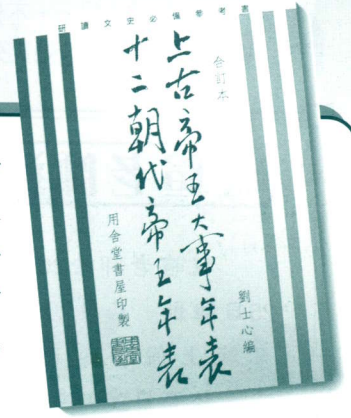 研讀文史必備參考書
合訂本
上古帝王大事年表
十二朝代帝王年表
劉士心編
用舍堂書屋印製